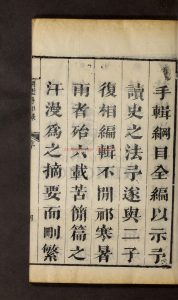 手輯綱目全編以示予
讀史之法予遂與二子
復相編輯不開祁寒暑
雨者殆六載苦簡篇之
汗漫為之摘要而刪繁